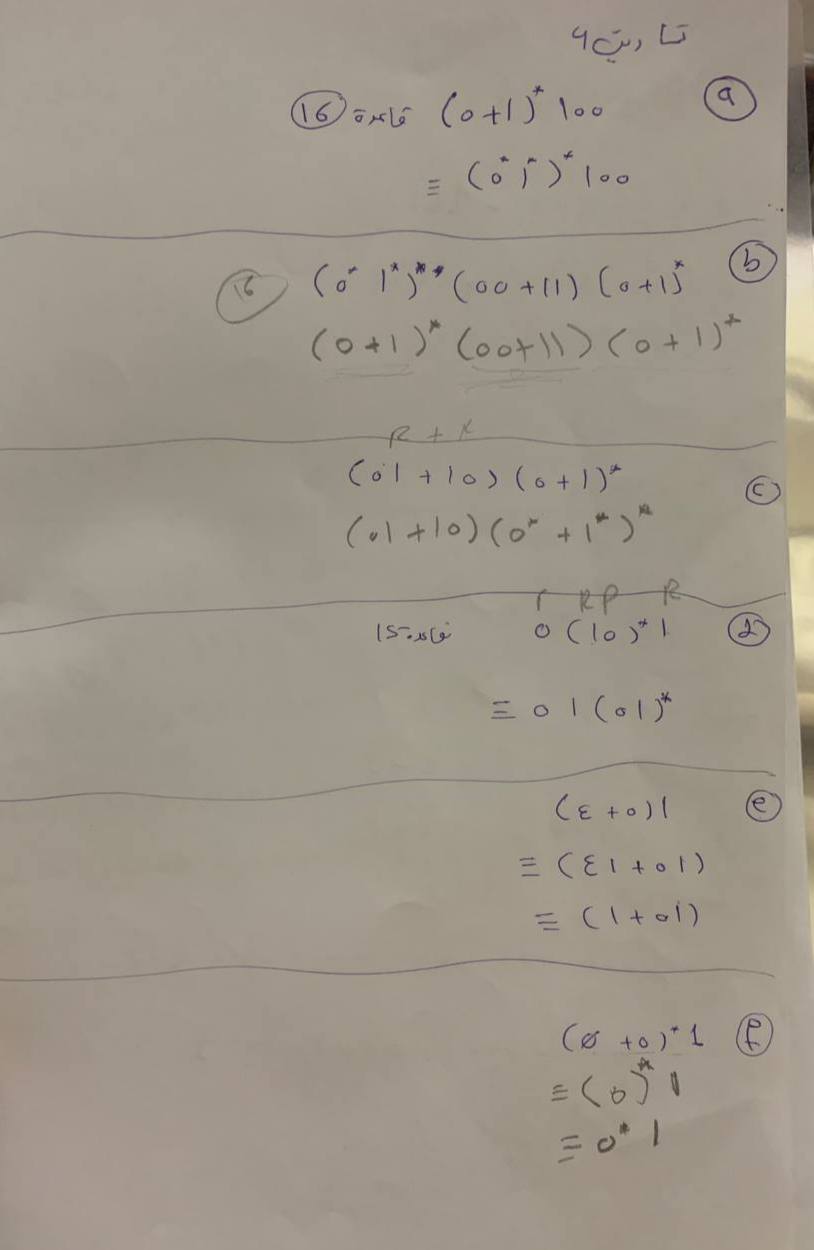 ⓐ (0+1)* 100 قاعدة ⑯
≡ (0* 1*)* 100
ⓑ (0* 1*)** (00+11) (0+1)* ⑯
(0+1)* (00+11) (0+1)*
R + R
ⓒ (01+10) (0+1)*
(01+10) (0* + 1*)*
r RP R
ⓓ 0 (10)* 1 قاعدة 15
≡ 0 1 (01)*
ⓔ (ε+0)1
≡ (ε1+01)
≡ (1+01)
ⓕ (∅+0)* 1
≡ (0)* 1
≡ 0* 1